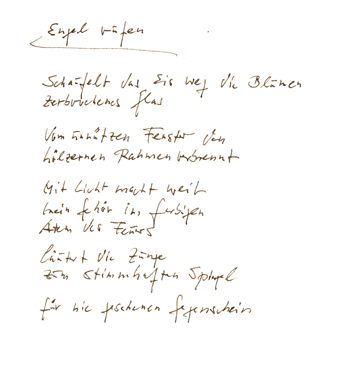 Engel rufen
Schaufelt das Eis weg die Blumen
zerbrochenes Glas
Vom unnützen Fenster den
hölzernen Rahmen verbrennt
Mit Licht macht weit
mein Gehör im farbigen
Atem des Feuers
läutert die Zunge
zum stimmhaften Spiegel
für nie gesehenen Gegenschein